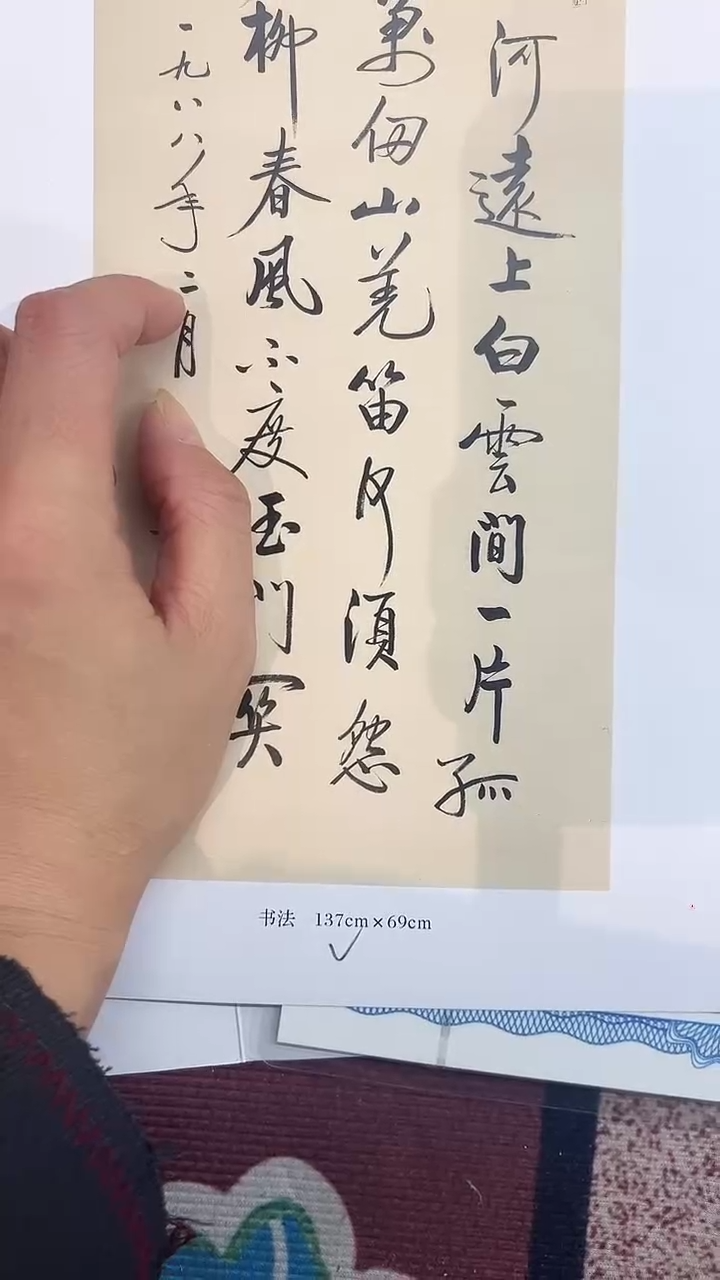 河遠上白雲間一片孤
萬仞山羌笛何須怨
柳春風不度玉門関
一九八八年二月
书法 137cm×69cm